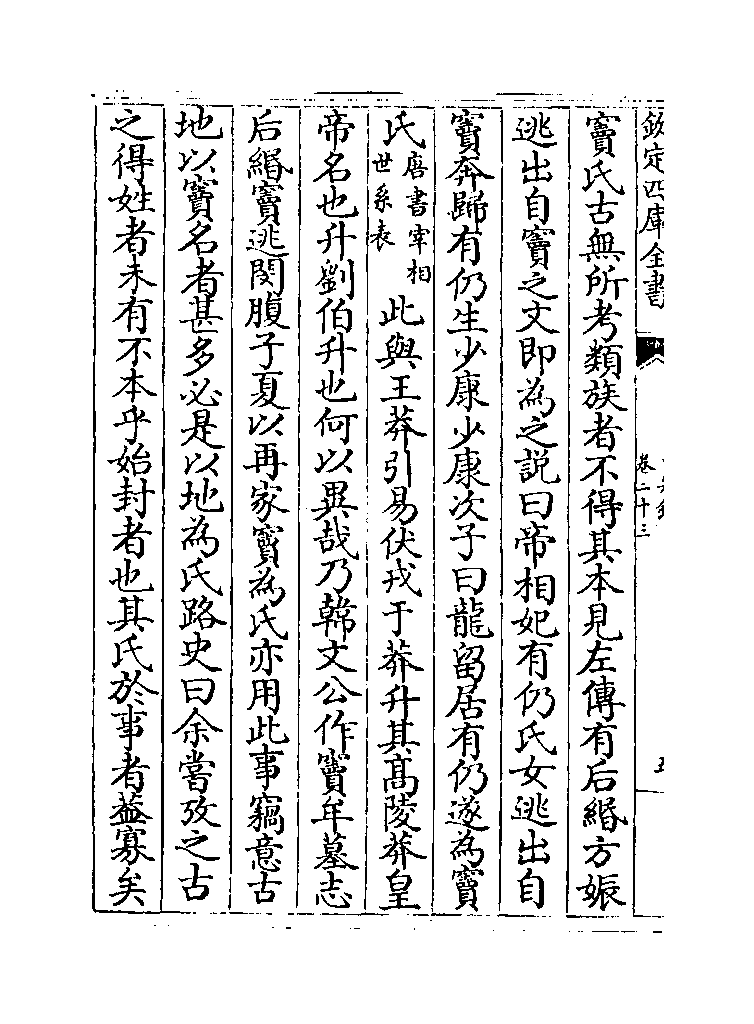 欽定四庫全書
卷二十三
五
竇氏古無所考類族者不得其本見左傳有后緡方娠
逃出自竇之文即為之說曰帝相妃有仍氏女逃出自
竇奔歸有仍生少康少康次子曰龍留居有仍遂為竇
氏唐書宰相世系表此與王莽引易伏戎于莽升其高陵莽皇
帝名也升劉伯升也何以異哉乃韓文公作竇牟墓志
后緡竇逃閔腹子夏以再家竇為氏亦用此事竊意古
地以竇名者甚多必是以地為氏路史曰余嘗攷之古
之得姓者未有不本乎始封者也其氏於事者蓋寡矣